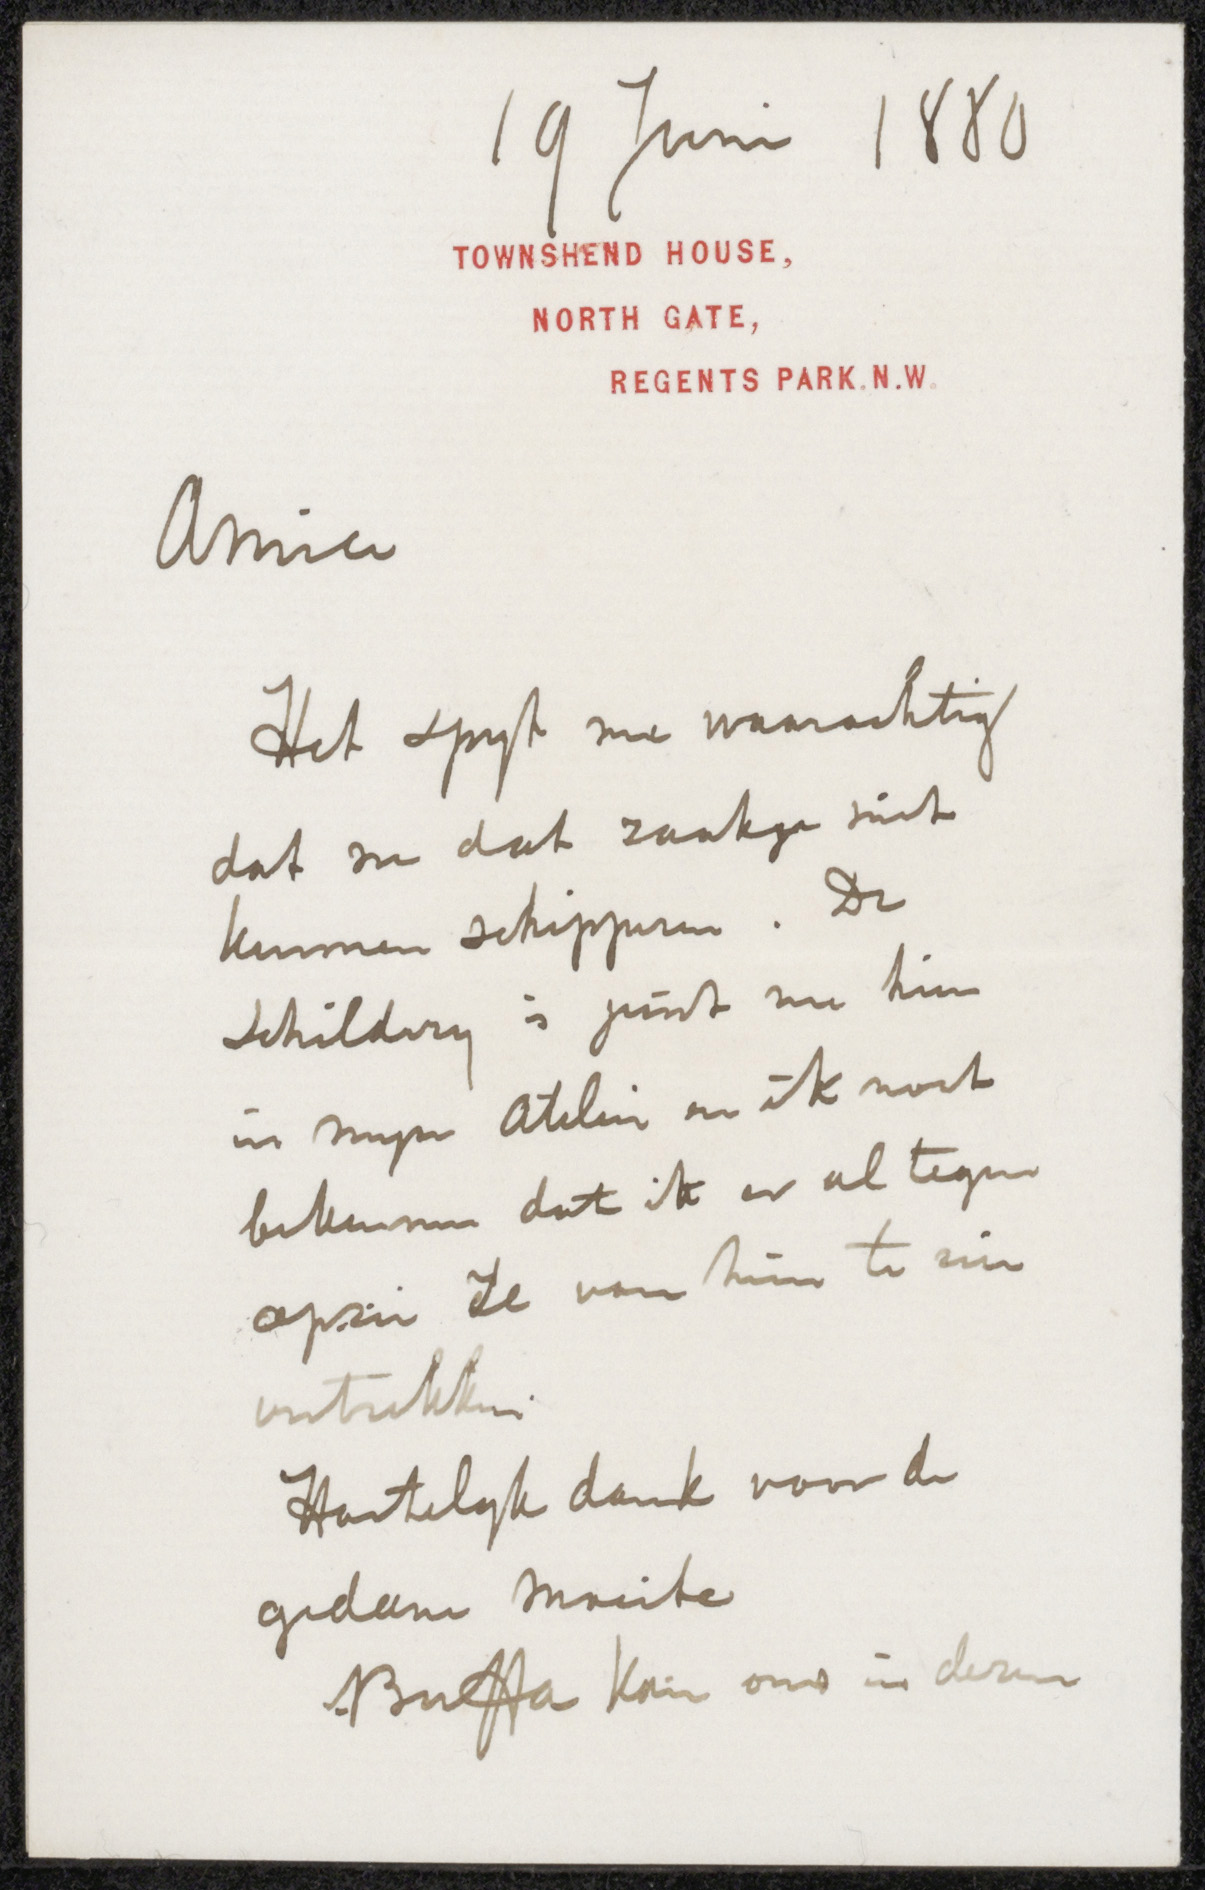 19 Juni 1880
TOWNSHEND HOUSE,
NORTH GATE,
REGENTS PARK. N.W.
Amice
Het spyt me waarachtig
dat we dat zaakje niet
kunnen schipperen. De
schildery is juist nu hier
in myn Atelier en ik moet
bekennen dat ik er al tegen
opzie ze van hier te zien
vertrekken.
Hartelyk dank voor de
gedane moeite
Buffa kan ons in dezen